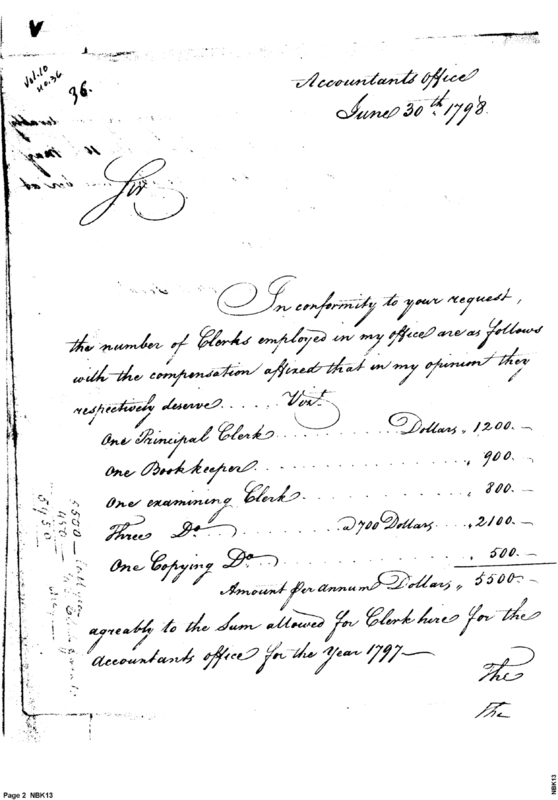 V
Vol. 10
No. 36
36.
Accountants office
June 30th. 1798.
Sir
In conformity to your request,
the number of Clerks employed in my office are as follows
with the compensation affixed that in my opinion they
respectively deserve..... Vizt.
One Principal Clerk.......... Dollars, 1200.—
One Bookkeeper.......... , 900.—
One examining Clerk.......... , 800.—
Three Do —— a 700 Dollars.... , 2100.—
One Copying Do.......... , 500.—
Amount per annum Dollars, 5500.—
agreably to the Sum allowed for Clerk hire for the
Accountants office for the Year 1797—
The
The
5500
450
5950
Page 2 NBK13
NBK13